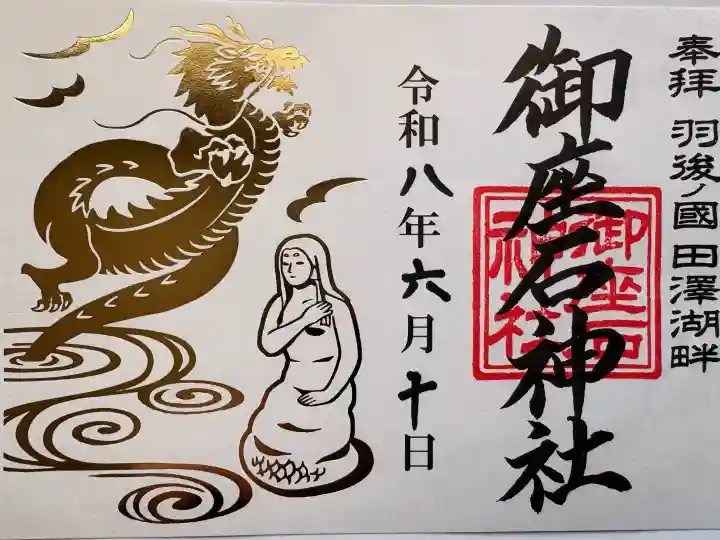 奉拝 羽後ノ國 田澤湖畔
御座石神社
御座石
神社
令和八年六月十日